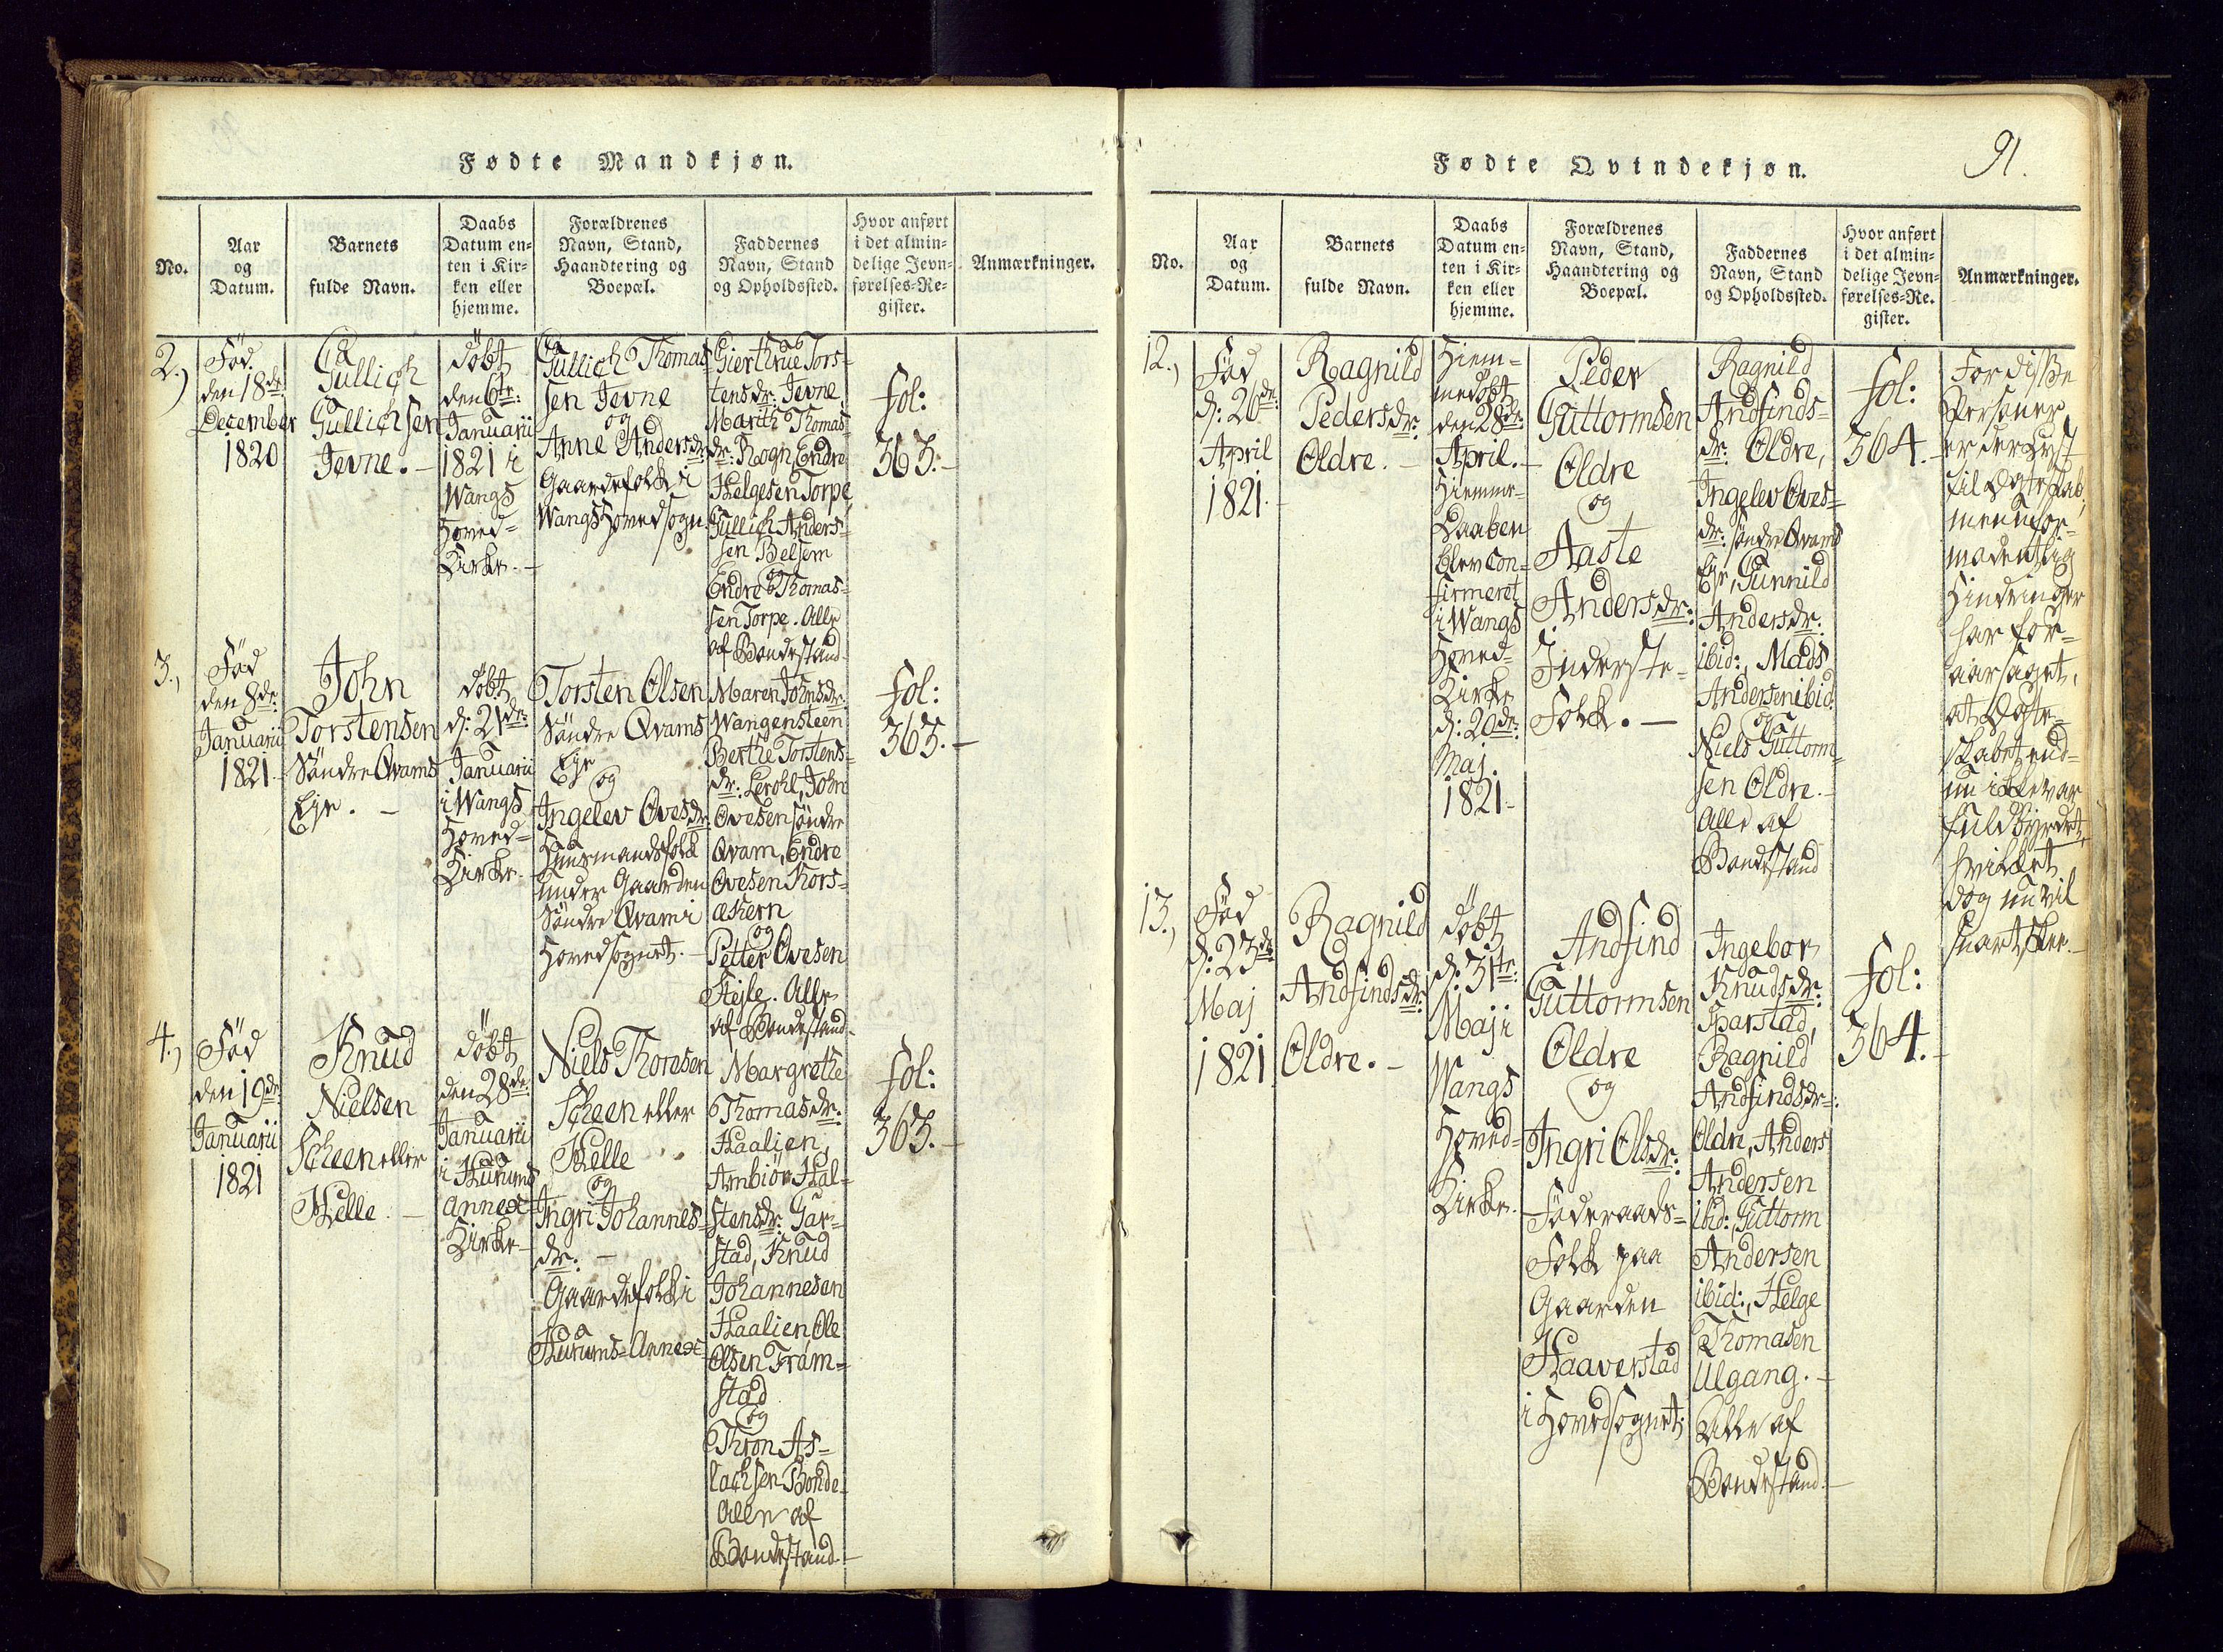 Fødte Mandkjøn.
No.
Aar
og
Datum.
Barnets
fulde Navn.
Daabs
Datum en-
ten i Kir-
ken eller
hjemme.
Forældrenes
Navn, Stand,
Haandtering og
Boepæl.
Faddernes
Navn, Stand
og Opholdssted.
Hvor anført
i det almin-
delige Jevn-
førelses-Re-
gister.
Anmærkninger.
2.,
Fød
den 18de:
December
1820
Gullich
Gullichsen
Jevne. –
døbt
den 6te:
Januarii
1821 i
Wangs
Hoved-
Kirke. –
Gullich Thomas
sen Jevne
og
Anne Andersdr:
Gaardefolk i
Wangs Hovedsogn
Gierthrue Tors-
tensdr: Jevne,
Marith Thomas-
dr: Rogn, Endre
Helgesen Torpe,
Gullich Anders-
sen Belsem
og
Endre Thomas-
sen Torpe. Alle
af Bondestand.
fol:
363. –
3.,
Fød
den 8de:
Januarii
1821
John
Torstensen
Søndre Qvams
Eje. –
døbt
d: 21de:
Januarii
i Wangs
Hoved-
Kirke.
Torsten Olsen
Søndre Qvams
Eje
og
Ingelev Ovesdr:
Huusmandsfolk
under Gaarden
Søndre Qvam i
Hovedsognet. –
Maren Johnsdr:
Wangensteen
Berthe Torstens-
dr: Lerohl, John
Ovesen søndre
Qvam, Endre
Ovesen Kors-
ækern
og
Petter Ovesen
Stejle. Alle
af Bondestand.
fol:
363. –
4.,
Fød
den 19de:
Januarii
1821
Knud
Nielsen
Scheen eller
Helle –
døbt
den 28de:
Januarii
i Hurums
Annex
Kirke –
Niels Thoresen
Scheen eller
Helle
og
Ingri Johannes-
dr: –
Gaardefolk i
Hurums-Annex
Margrethe
Thomasdr:
Haalien,
Ambiør Hal-
stensdr: Gar-
stad, Knud
Johannesen
Haalien Ole
Olsen Fram-
stad
og
Thron As-
lachsen Bonde
Alle af
Bondestand. –
fol:
363. –
91.
Fødte Qvindekjøn.
No.
Aar
og
Datum.
Barnets
fulde Navn.
Daabs
Datum en-
ten i Kir-
ken eller
hjemme.
Forældrenes
Navn, Stand,
Haandtering og
Boepæl.
Faddernes
Navn, Stand
og Opholdssted.
Hvor anført
i det almin-
delige Jevn-
førelses-Re.
gister.
Anmærkninger.
12.,
Fød
d: 26de:
April
1821.
Ragnild
Pedersdr:
Oldre. –
Hjem-
medøbt
den 28de:
April. –
Hiemme-
Daaben
blev con-
firmeret
i Wangs
Hoved-
Kirke
d: 20de:
Maj.
1821 –
Peder
Guttormsen
Oldre
og
Aaste
Andersdr:
Inderste-
Folk. –
Ragnild
Andfinds-
dr: Oldre,
Ingelev Oves-
dr: søndre Qvams
Eje, Gunnild
Andersdr:
ibid:, Mads
Andersen ibid:
og
Niels Guttorm-
sen Oldre. –
Alle af
Bondestand
fol:
364. –
For disse
Personer
er der lyst
til Ægteskab,
men
Hindringer
har for-
aarsaget,
at Ægte-
skabet end-
nu ikke var
fuldbyrdet,
hvilket
dog nu vil
snart skee. –
13.,
Fød
d: 23de:
Maj
1821
Ragnild
Andfindsdr:
Oldre. –
døbt
d: 31te:
Maji
Wangs
Hoved-
Kirke.
Andfind
Guttormsen
Oldre
og
Ingri Olsdr:
Føderaads-
Folk paa
Gaarden
Haaverstad
i Hovedsognet.
Ingebor
Knudsdr:
Sparstad,
Ragnild
Andfindsdr:
Oldre, Anders
Andersen
ibid:, Guttorm
Andersen
ibid:, Helge
Thomasen
Ulgang. –
Alle af
Bondestand. –
fol:
364. –